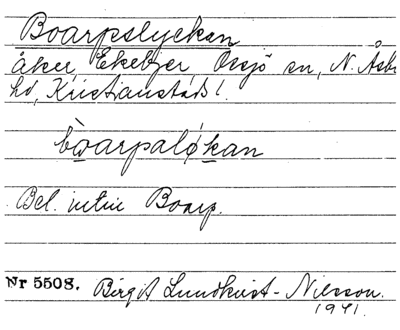 Boarpslyckan
åker, Ekebjer Össjö sn, N. Åsb
hd, Kristianstads l.
boarpaløkan
Bel. intill Boarp.
Nr 5508. Birgit Lundkvist-Nilsson.
1941.